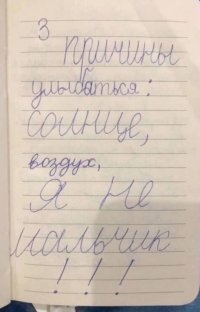 3
причины
улыбаться:
солнце,
воздух,
Я не
мальчик
!!!